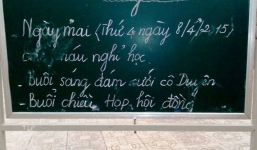 Ngày mai (Thứ 4 ngày 8/4/2015)
các cháu nghỉ học
- Buổi sáng đám cưới cô Duyên
- Buổi chiều Họp hội đồng